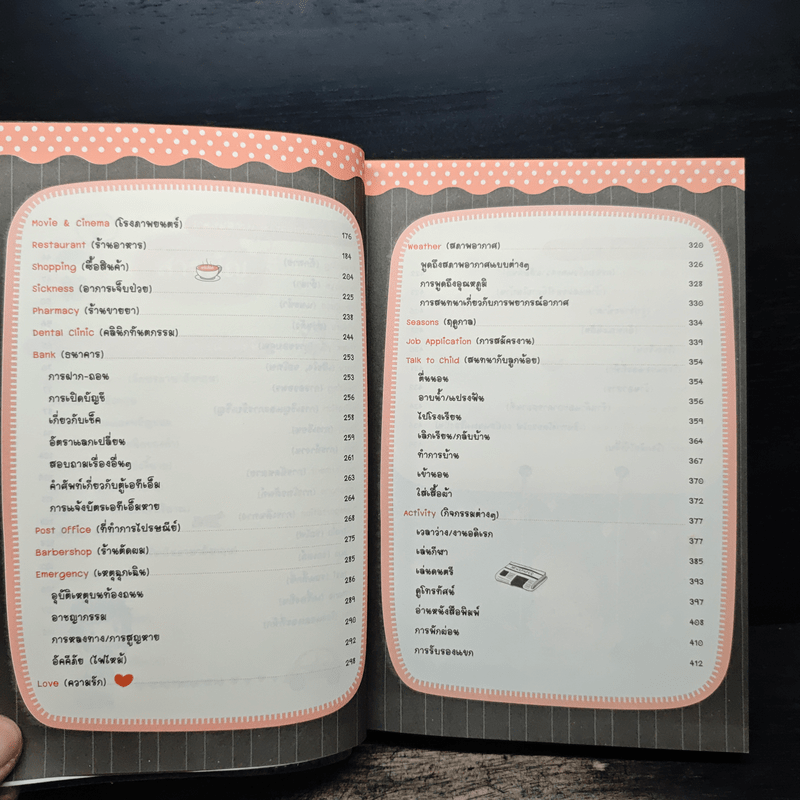 Movie & Cinema (โรงภาพยนตร์) 176
Restaurant (ร้านอาหาร) 184
Shopping (ซื้อสินค้า) 204
Sickness (อาการเจ็บป่วย) 225
Pharmacy (ร้านขายยา) 238
Dental Clinic (คลินิกทันตกรรม) 244
Bank (ธนาคาร) 253
การฝาก-ถอน 253
การเปิดบัญชี 256
เกี่ยวกับเช็ค 258
อัตราแลกเปลี่ยน 259
สอบถามเรื่องอื่นๆ 261
คำศัพท์เกี่ยวกับตู้เอทีเอ็ม 263
การแจ้งบัตรเอทีเอ็มหาย 264
Post Office (ที่ทำการไปรษณีย์) 268
Barbershop (ร้านตัดผม) 275
Emergency (เหตุฉุกเฉิน) 285
อุบัติเหตุบนท้องถนน 286
อาชญากรรม 289
การหลงทาง/การสูญหาย 290
อัคคีภัย (ไฟไหม้) 292
Love (ความรัก) 298
Weather (สภาพอากาศ) 320
พูดถึงสภาพอากาศแบบต่างๆ 326
การพูดถึงอุณหภูมิ 328
การสนทนาเกี่ยวกับการพยากรณ์อากาศ 330
Seasons (ฤดูกาล) 334
Job Application (การสมัครงาน) 339
Talk to Child (สนทนากับลูกน้อย) 354
ตื่นนอน 354
อาบน้ำ/แปรงฟัน 356
ไปโรงเรียน 359
เลิกเรียน/กลับบ้าน 364
ทำการบ้าน 367
เข้านอน 370
ใส่เสื้อผ้า 372
Activity (กิจกรรมต่างๆ) 377
เวลาว่าง/งานอดิเรก 377
เล่นกีฬา 385
เล่นดนตรี 393
ดูโทรทัศน์ 397
อ่านหนังสือพิมพ์ 408
การพักผ่อน 410
การรับรองแขก 412